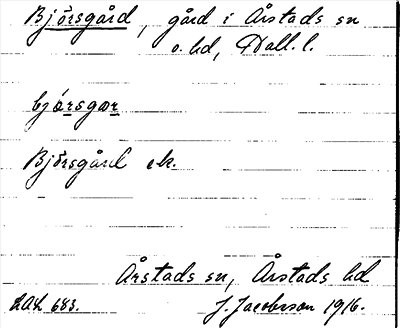 Björsgård, gård i Årstads sn
o. hd, Hall. l.
bjö́rsgar
Björsgård ek.
Årstads sn, Årstads hd
LAL 683. J. Jacobsson 1916.